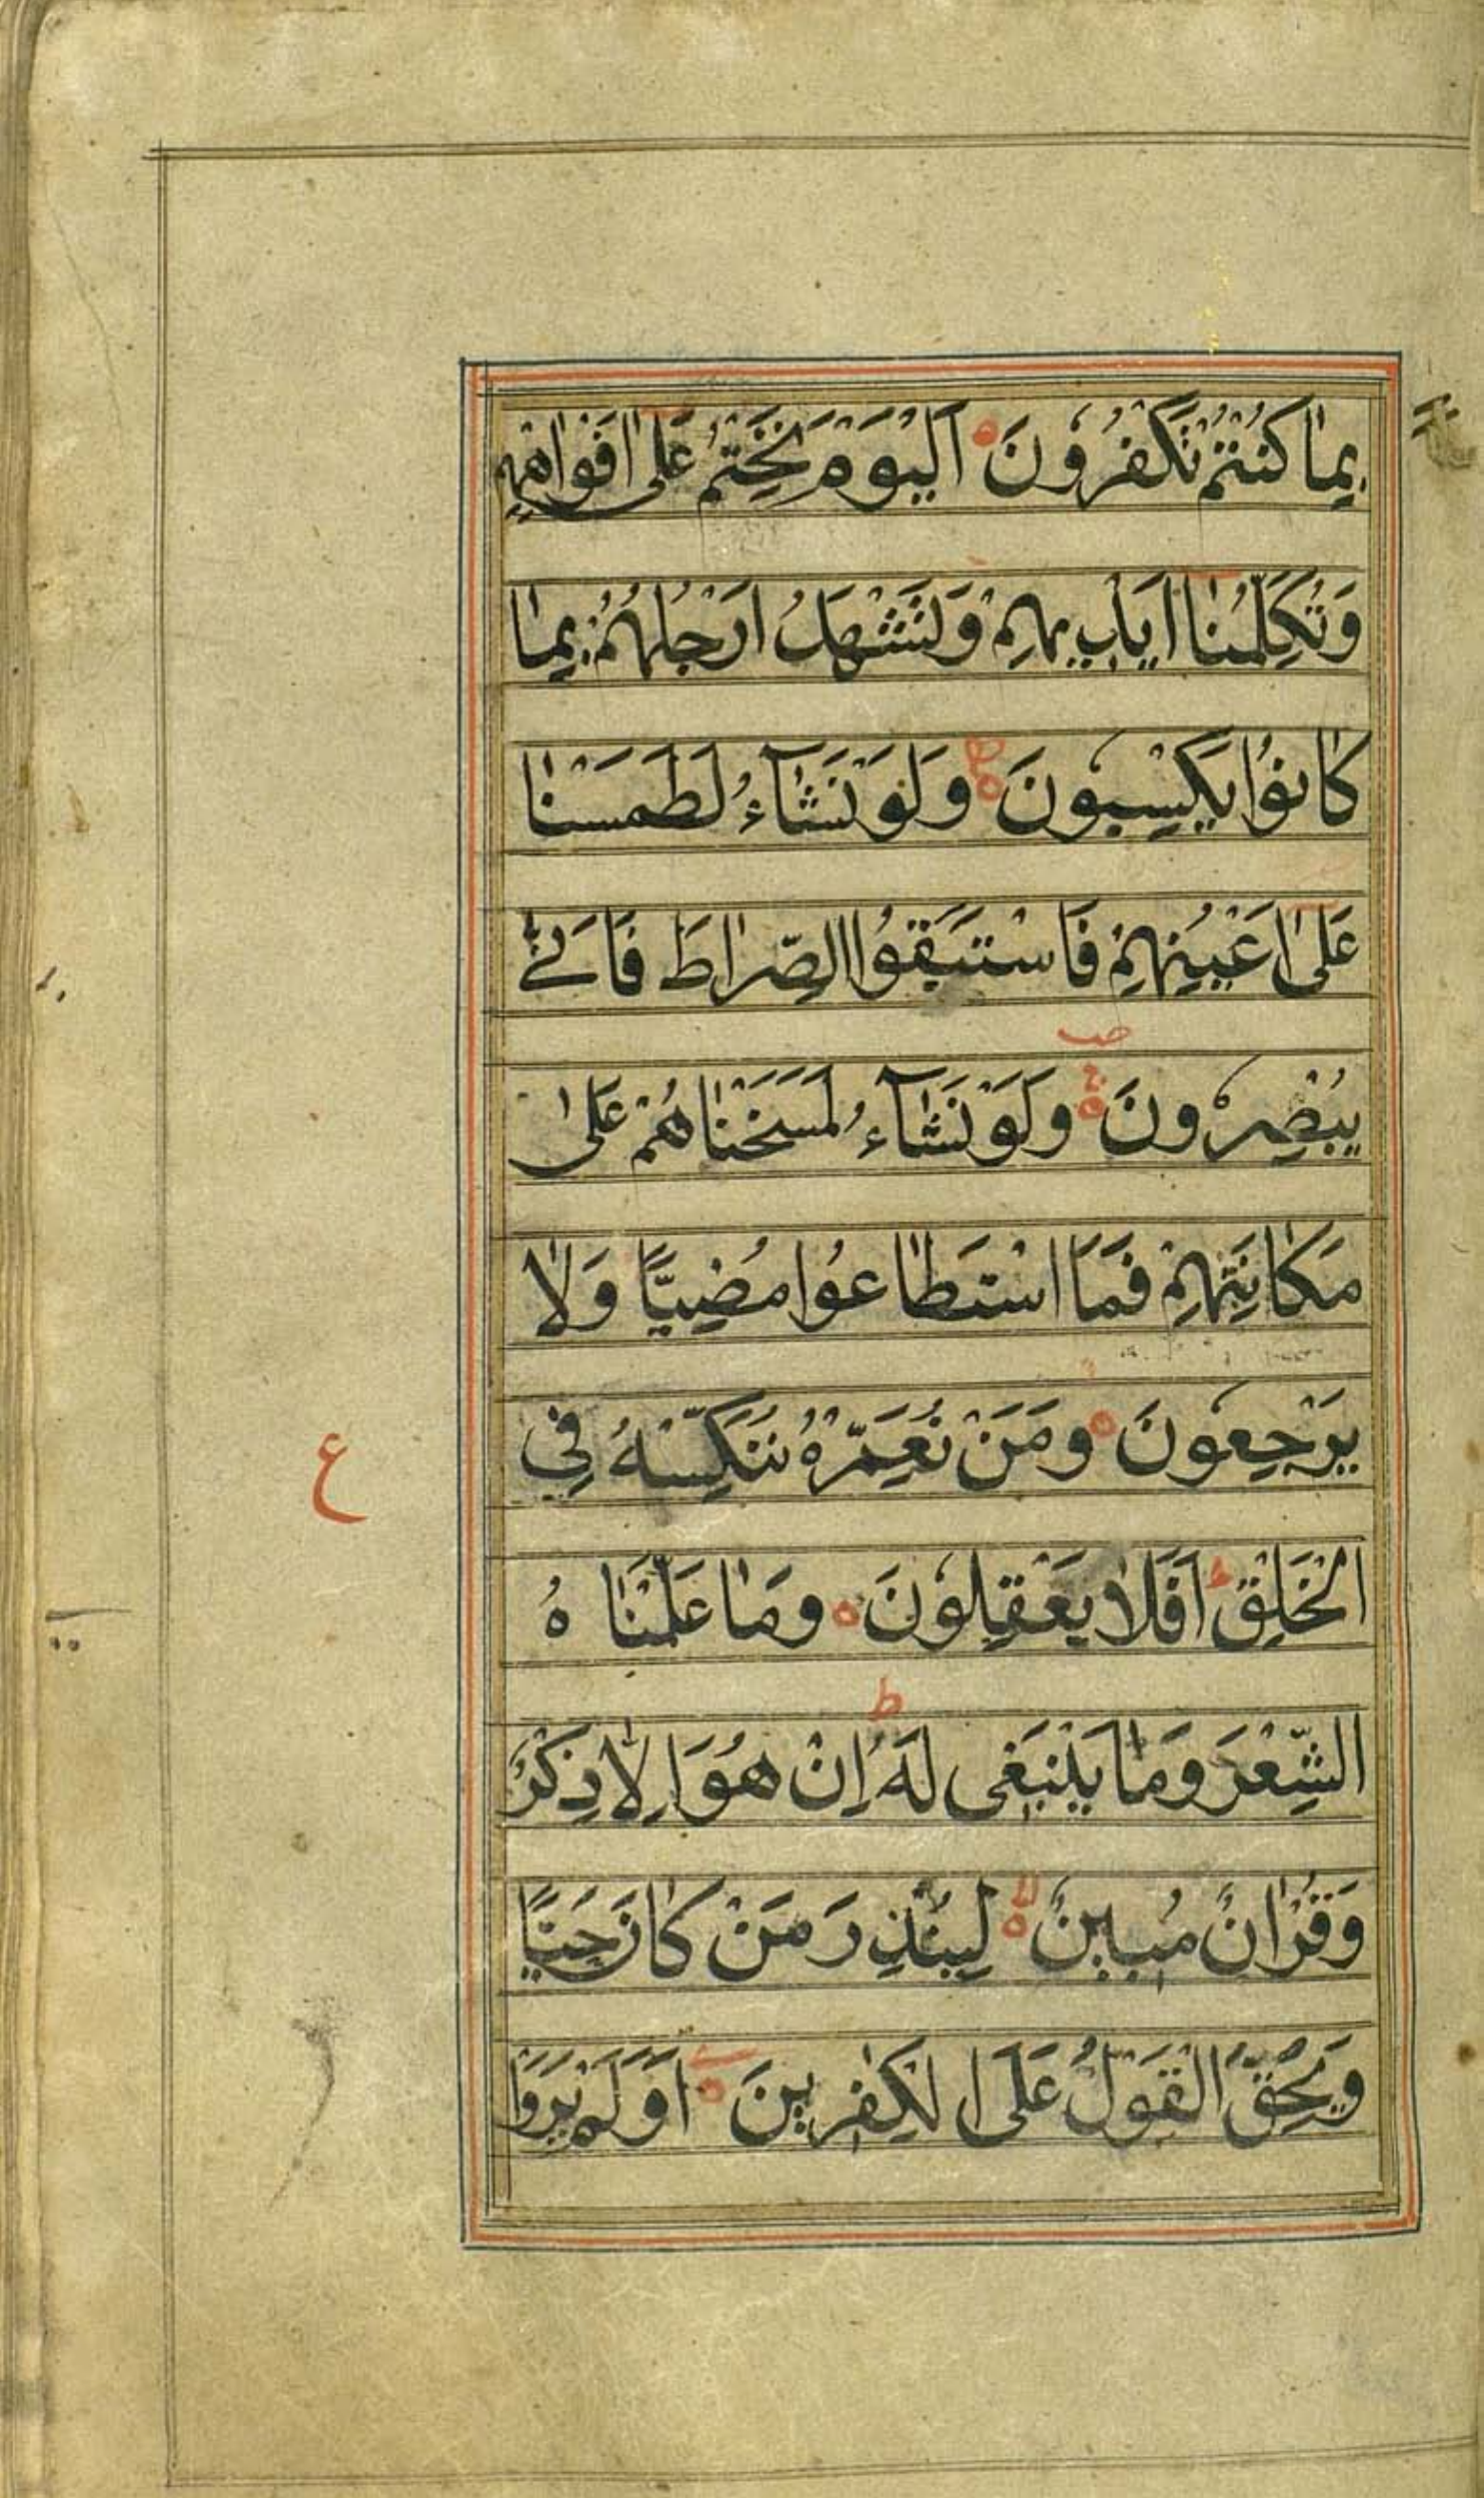 بِمَا كُنْتُمْ تَكْفُرُونَ اَلْيَوْمَ نَخْتِمُ عَلٰى اَفْوَاهِهِمْ
وَتُكَلِّمُنَا اَيْدِيهِمْ وَتَشْهَدُ اَرْجُلُهُمْ بِمَا
كَانُوْا يَكْسِبُونَ وَلَوْ نَشَآءُ لَطَمَسْنَا
عَلٰى اَعْيُنِهِمْ فَاسْتَبَقُوا الصِّرَاطَ فَاَنّٰى
يُبْصِرُونَ وَلَوْ نَشَآءُ لَمَسَخْنَاهُمْ عَلٰى
مَكَانَتِهِمْ فَمَا اسْتَطَاعُوا مُضِيًّا وَلَا
يَرْجِعُونَ وَمَنْ نُعَمِّرْهُ نُنَكِّسْهُ فِي
الْخَلْقِ اَفَلَا يَعْقِلُونَ وَمَا عَلَّمْنَاهُ
الشِّعْرَ وَمَا يَنْبَغِى لَهُ اِنْ هُوَ اِلَّا ذِكْرٌ
وَقُرْاٰنٌ مُبِينٌ لِيُنْذِرَ مَنْ كَانَ حَيًّا
وَيَحِقَّ الْقَوْلُ عَلَى الْكٰفِرِينَ اَوَلَمْ يَرَوْا
ع